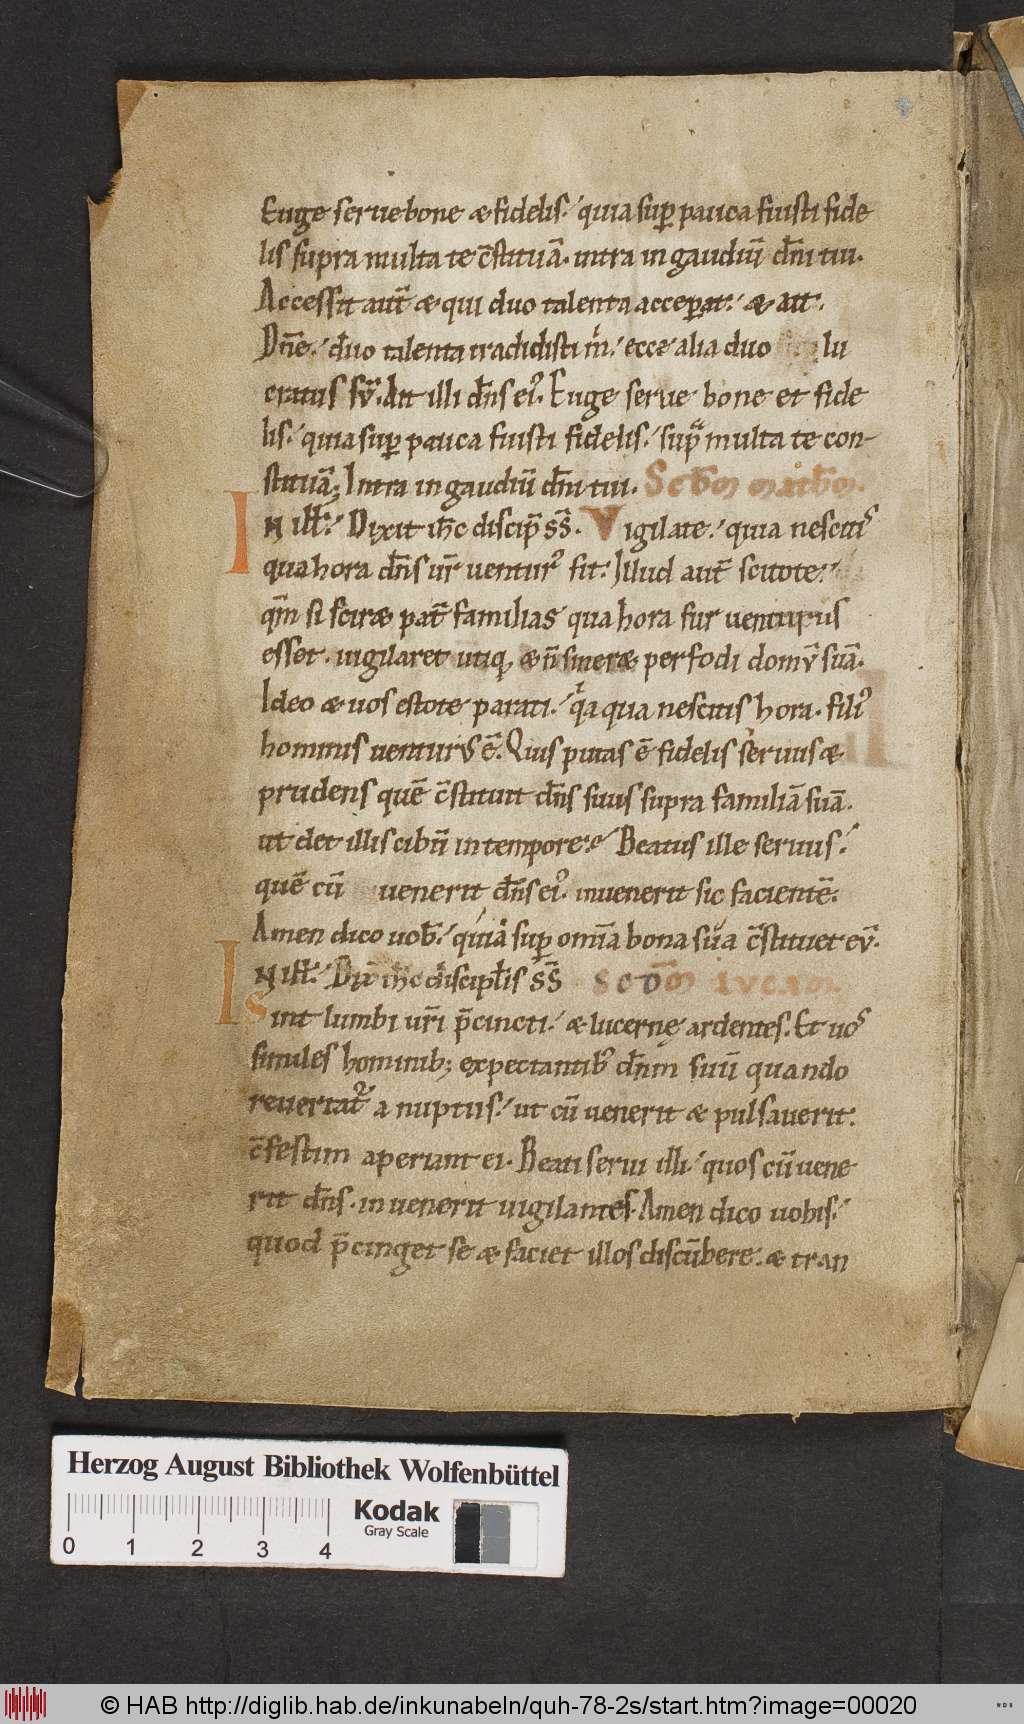 Euge serue bone & fidelis. quia sup̲ pauca fuisti fide
lis supra multa te c̄stituā. intra in gaudiū dn̄i tui.
Accessit aut̄ & qui duo talenta accep̲at. & ait.
Dn̄e. duo talenta tradidisti m̄. ecce alia duo lu
cratus sū. Ait illi dn̄s ei'. Euge serue bone et fide
lis. quia sup̲ pauca fuisti fidelis. sup̄ multa te con-
stituā; Intra in gaudiū dn̄i tui. Scd̄m
N ill̄. Dixit ih̄c discip̄ ss̄. Vigilate. quia nescitis
qua hora dn̄s ur̄ uentur' sit. Illud aut̄ scitote.
qm̄ si scir& pat̄ familias qua hora fur uenturus
esset. uigilaret utiq, & n̄ siner& perfodi domū suā.
Ideo & uos estote parati. qa qua nescitis hora. fili'
hominis uenturus ē. Quis putas ē fidelis seruus &
prudens quē c̄stituit dn̄s suus supra familiā suā.
ut det illis cibū in tempore. Beatus ille seruus.
quē cū uenerit dn̄s ei'. inuenerit sic facientē.
Amen dico uob̄. quia sup̲ omnia bona sua c̄stituet eū.
IN ill̄. Dix̄ ih̄c discipl̄is ss̄ Scd̄m lucam
Sint lumbi ur̄i p̄cincti. & lucernę ardentes. Et uos
similes hominib; expectantib' dn̄m suū quando
reuertat' a nuptiis. ut cū uenerit & pulsauerit.
c̄festim aperiant ei. Beati serui illi. quos cū uene
rit dn̄s. inuenerit uigilantes. Amen dico uobis.
quod p̄cinget se & faciet illos discūbere. & tran
Herzog August Bibliothek Wolfenbüttel
Kodak
Gray Scale
0 1 2 3 4
© HAB http://diglib.hab.de/inkunabeln/quh-78-2s/start.htm?image=00020